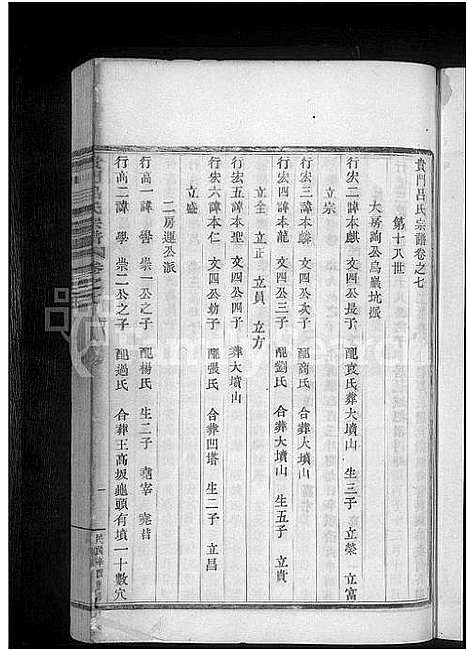 貴門呂氏宗譜卷之七
第十八世
大房洵公烏巖坑派
行宏二諱本麒 文四公長子 配袁氏葬大墳山 生三子 立榮 立富
立宗
行宏三諱本麟 文四公次子 配商氏 合葬大墳山
行宏四諱本龍 文四公三子 配劉氏 合葬大墳山 生五子 立貴
立全 立正 立員 立方
行宏五諱本聖 文四公四子 葬大墳山
行宏六諱本仁 文四公幼子 配張氏 合葬凹塔 生二子 立昌
立盛
二房運公派
行高一諱 嚳 崇一公之子 配楊氏 生二子 堯宰 堯君
行高二諱 學 崇二公之子 配過氏 合葬王高坂龜頭有墳一十數穴
貴門呂氏宗譜 卷之七
一